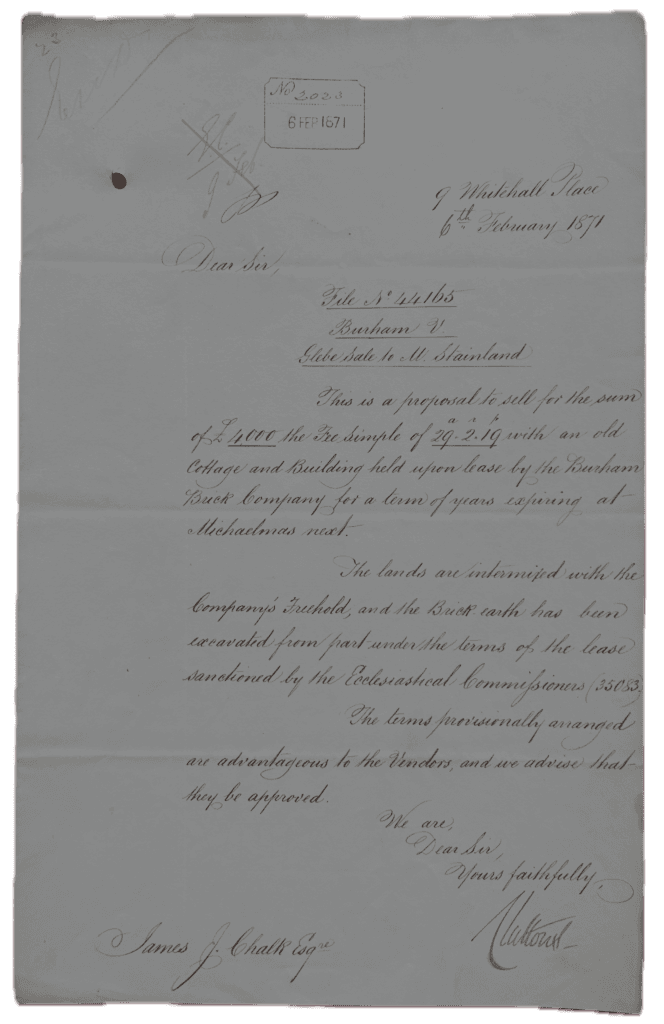 22
No 2023
6 FEB 1871
9 Whitehall Place
6th February 1871
Dear Sir,
File No 44165
Burham V.
Glebe Sale to M. Stainland
This is a proposal to sell for the sum
of £4000 the Fee Simple of 29a. 2r. 19p with an old
Cottage and Building held upon lease by the Burham
Brick Company for a term of years expiring at
Michaelmas next.
The lands are intermixed with the
Company's Freehold, and the Brick earth has been
excavated from part under the terms of the lease
sanctioned by the Ecclesiastical Commissioners (35083)
The terms provisionally arranged
are advantageous to the Vendors, and we advise that
they be approved.
We are,
Dear Sir,
Yours faithfully,
Cluttons
James J. Chalk Esqre